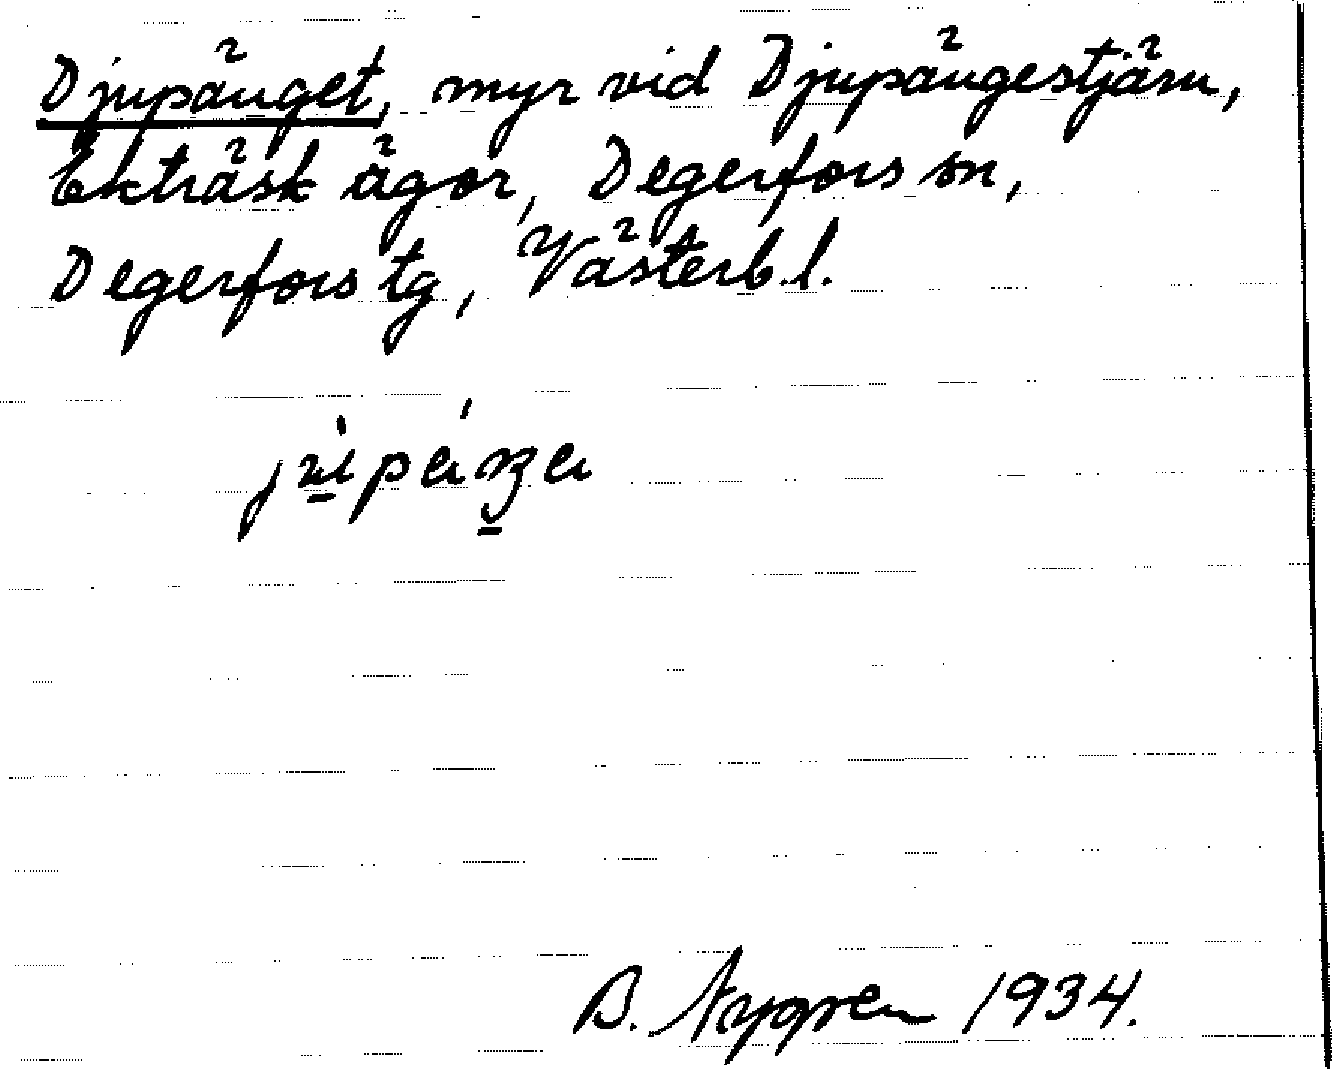 Djupänget, myr vid Djupängestjärn,
Ekträsk ägor, Degerfors sn,
Degerfors tg, Västerb. l.
B. Nygren 1934.